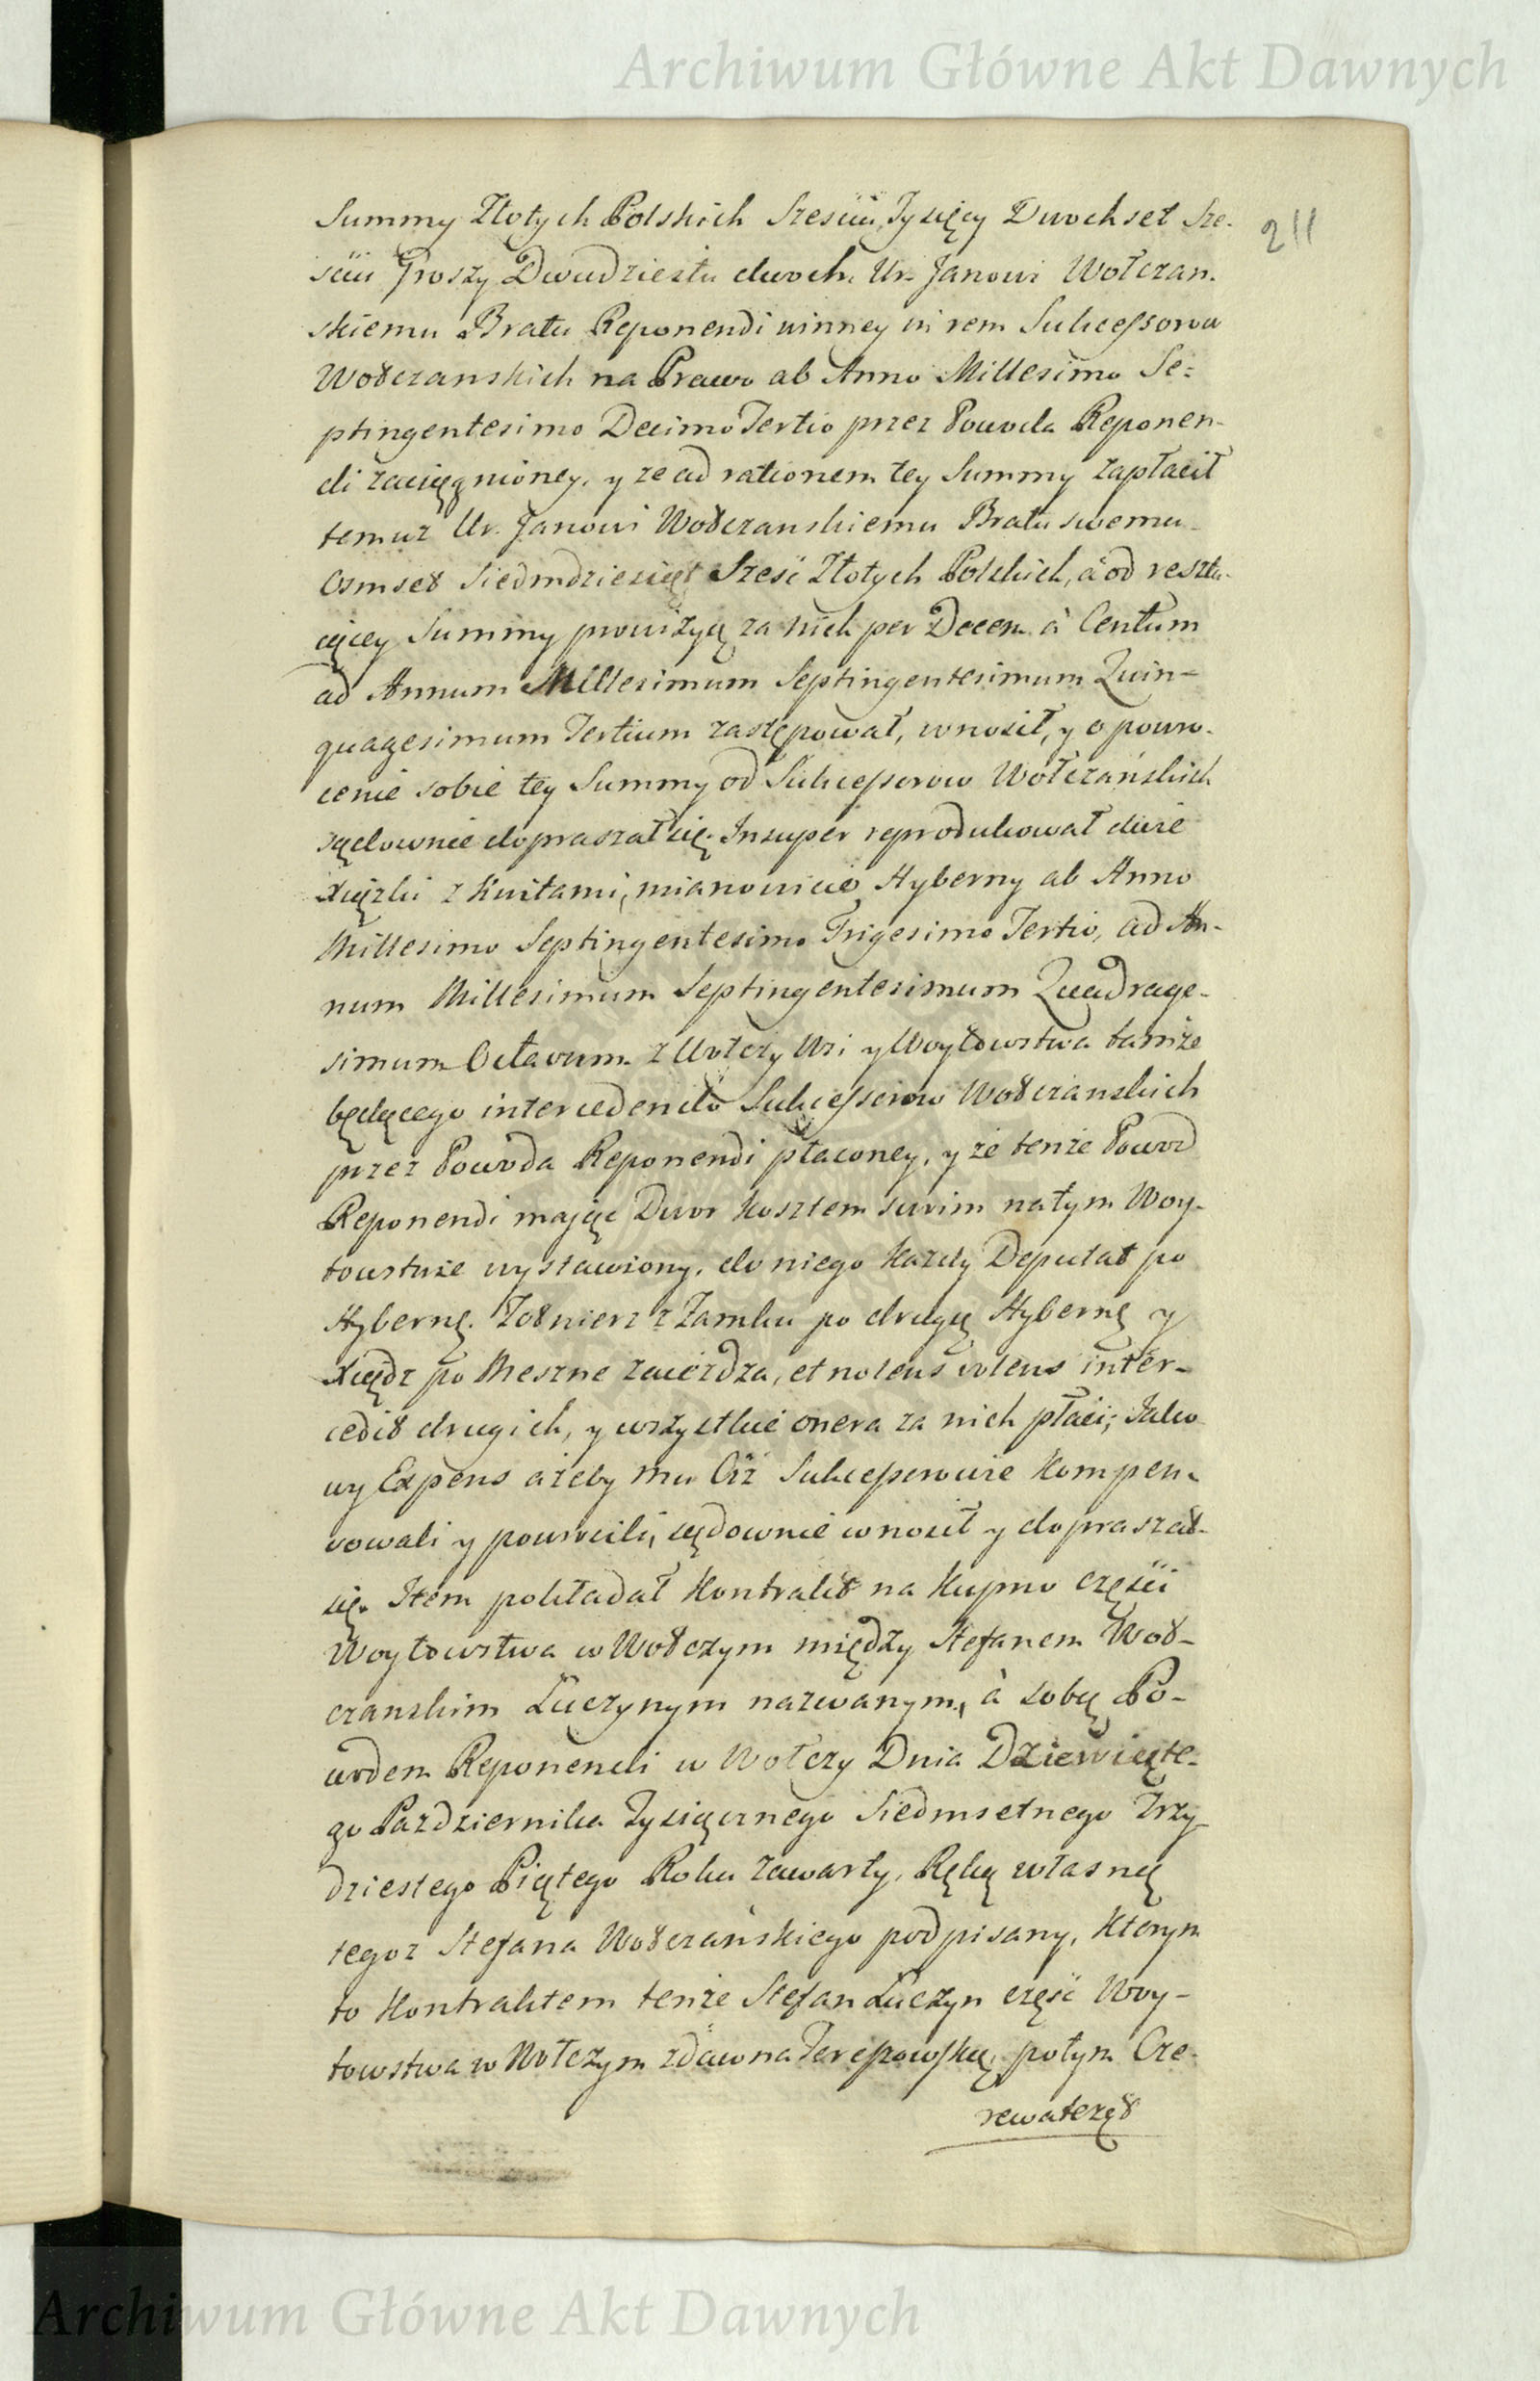 Archiwum Główne Akt Dawnych
211
Summy Złotych Polskich Szesciu Tysięcy Dwochset Sze-
sciu Groszy Dwudziestu dwoch Ur. Janowi Wołczan-
skiemu Bratu Reponendi winney in rem Sukcessorow
Wołczanskich na Prawo ab Anno Millesimo Se=
ptingentesimo Decimo Tertio przez Powoda Reponen-
di zaciągnioney, y ze ad rationem tey Summy zapłacił
temuz Ur. Janowi Wołczanskiemu Bratu swemu
Osmset Siedmdziesiąt Szesc Złotych Polskich, à od resztu-
iącey Summy prowizyą za nich per Decem à Centum
ad Annum Millesimum Septingentesimum Quin-
quagesimum Tertium zastępował, wnosił, y o powro-
cenie sobie tey Summy od Sukcessorow Wołczańskich
sądownie dopraszał się. Insuper reprodukował dwie
Xiązki z Kwitami, mianowicie Hyberny ab Anno
Millesimo Septingentesimo Trigesimo Tertio, ad An-
num Millesimum Septingentesimum Quadrage-
simum Octavum z Wołczy Wsi y Woytowstwa tamże
będącego intercedendo Sukcessorow Wołczanskich
przez Powoda Reponendi płaconey, y że tenże Powod
Reponendi mając Dwor kosztem swoim na tym Woy-
towstwie wystawiony, do niego każdy Deputat po
Hybernę, Żołnierz z Zamku po drugą Hybernę y
Xiądz po Meszne zaieżdza, et nolens volens inter-
cedit drugich, y wszystkie onera za nich płaci; Jako-
wy Expens ażeby mu Ciż Sukcessorowie kompen-
sowali y powrocili, sądownie wnosił y dopraszał
się. Item pokładał Kontrakt na kupno części
Woytowstwa w Wołczym między Stefanem Woł-
czanskim Luczynym nazwanym, à sobą Po-
wodem Reponendi w Wołczy Dnia Dziewiąte-
go Pazdziernika Tysiącznego Siedmsetnego Trzy-
dziestego Piątego Roku zawarty, Ręką własną
tegoz Stefana Wołczańskiego podpisany, ktorym
to Kontraktem tenże Stefan Luczyn część Woy-
towstwa w Wołczym zdawna Terepowską, potym Cze-
rewatczą
Archiwum Główne Akt Dawnych